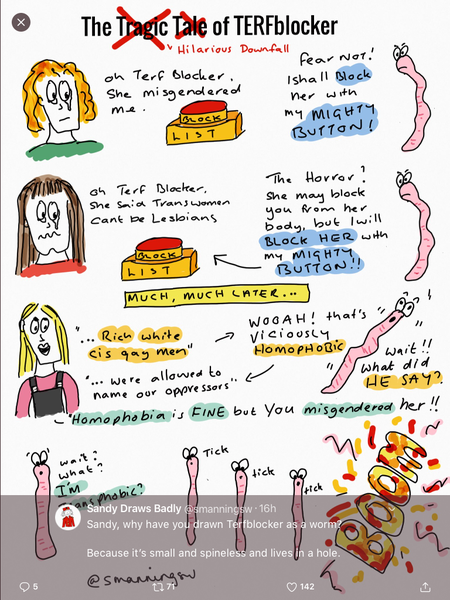 The Tragic Tale of TERFblocker
Hilarious Downfall
oh Terf Blocker.
She misgendered
me.
BLOCK
LIST
Fear NOT!
I shall Block
her with
my MIGHTY
BUTTON!
oh Terf Blocker.
She said Transwomen
cant be Lesbians
BLOCK
LIST
The Horror?
She may block
you from her
body, but I will
BLOCK HER with
my MIGHTY
BUTTON!!
MUCH, MUCH LATER...
"... Rich white
cis gay men"
WOOAH! that's
viciously
HOMOPHOBIC
"... were allowed to
name our oppressors"
wait!!
what did
HE SAY?
"Homophobia is FINE but you misgendered her!!
wait?
what?
I'm
transphobic?
Tick
tick
tick
BOOM
Sandy Draws Badly @smanningsw · 16h
Sandy, why have you drawn Terfblocker as a worm?
Because it's small and spineless and lives in a hole.
@smanningsw
5
71
142